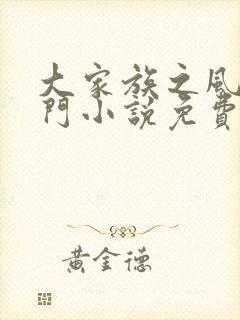 大家族之風
門小說免費
黃金德